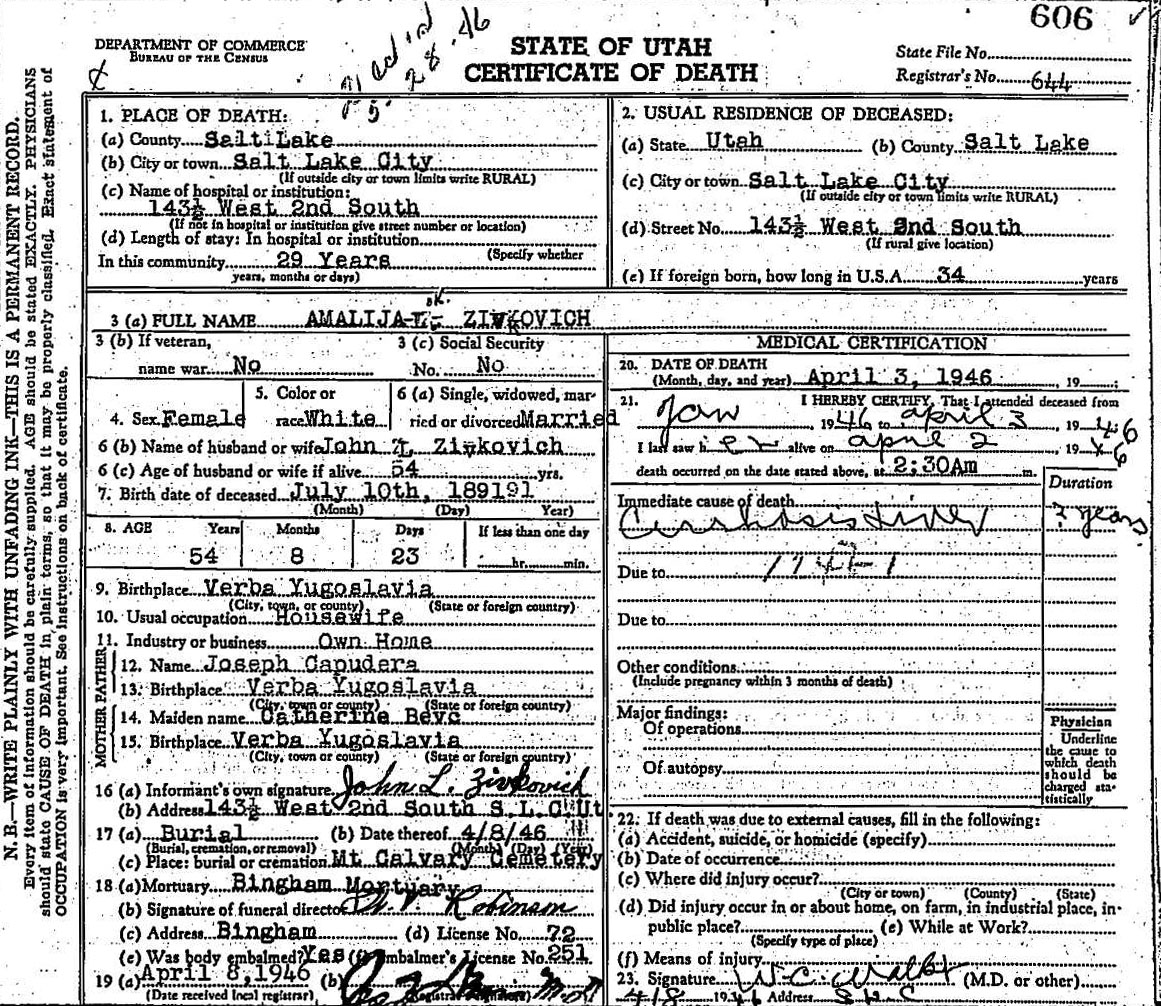 606
DEPARTMENT OF COMMERCE
BUREAU OF THE CENSUS
STATE OF UTAH
CERTIFICATE OF DEATH
State File No.
Registrar's No. 644
N. B.—WRITE PLAINLY WITH UNFADING INK—THIS IS A PERMANENT RECORD.
Every item of information should be carefully supplied. AGE should be stated EXACTLY. PHYSICIANS
should state CAUSE OF DEATH in plain terms, so that it may be properly classified. Exact statement of
OCCUPATION is very important. See instructions on back of certificate.
1. PLACE OF DEATH:
(a) County Salt Lake
(b) City or town Salt Lake City
(If outside city or town limits write RURAL)
(c) Name of hospital or institution:
143½ West 2nd South
(If not in hospital or institution give street number or location)
(d) Length of stay: In hospital or institution
(Specify whether
In this community 29 Years
years, months or days)
2. USUAL RESIDENCE OF DECEASED:
(a) State Utah (b) County Salt Lake
(c) City or town Salt Lake City
(If outside city or town limits write RURAL)
(d) Street No. 143½ West 2nd South
(If rural give location)
(e) If foreign born, how long in U.S.A. 34 years
3 (a) FULL NAME AMALIJA ZIVKOVICH
3 (b) If veteran,
name war No
3 (c) Social Security
No. No
4. Sex Female
5. Color or
race White
6 (a) Single, widowed, mar-
ried or divorced Married
6 (b) Name of husband or wife John L. Zivkovich
6 (c) Age of husband or wife if alive 54 yrs.
7. Birth date of deceased July 10th, 1891 91
(Month) (Day) Year)
8. AGE Years Months Days If less than one day
54 8 23 hr. min.
9. Birthplace Verba Yugoslavia
(City, town, or county) (State or foreign country)
10. Usual occupation Housewife
11. Industry or business Own Home
FATHER
12. Name Joseph Capudera
13. Birthplace Verba Yugoslavia
(City, town or county) (State or foreign country)
MOTHER
14. Maiden name Catherine Bevc
15. Birthplace Verba Yugoslavia
(City, town or county) (State or foreign country)
16 (a) Informant's own signature John L. Zivkovich
(b) Address 143½ West 2nd South S.L.C. Ut
17 (a) Burial (b) Date thereof 4/8/46
(Burial, cremation, or removal) (Month) (Day) (Year)
(c) Place: burial or cremation Mt Calvary Cemetery
18 (a) Mortuary Bingham Mortuary
(b) Signature of funeral director Robinson
(c) Address Bingham (d) License No. 72
(e) Was body embalmed? Yes (f) Embalmer's License No. 251
19 (a) April 8, 1946 (b)
(Date received local registrar) (Registrar's signature)
MEDICAL CERTIFICATION
20. DATE OF DEATH
(Month, day, and year) April 3, 1946, 19
21. I HEREBY CERTIFY, That I attended deceased from
Jan 1946 to April 3 1946
I last saw her alive on April 2 1946
death occurred on the date stated above, at 2:30Am m.
Duration
Immediate cause of death
Cirrhosis Liver ? years
Due to
Due to
Other conditions
(Include pregnancy within 3 months of death)
Major findings:
Of operations
Of autopsy
Physician
Underline
the cause to
which death
should be
charged sta-
tistically
22. If death was due to external causes, fill in the following:
(a) Accident, suicide, or homicide (specify)
(b) Date of occurrence
(c) Where did injury occur?
(City or town) (County) (State)
(d) Did injury occur in or about home, on farm, in industrial place, in
public place? (e) While at Work?
(Specify type of place)
(f) Means of injury
23. Signature W. C. Walker (M.D. or other)
4/8 1946 Address S L C